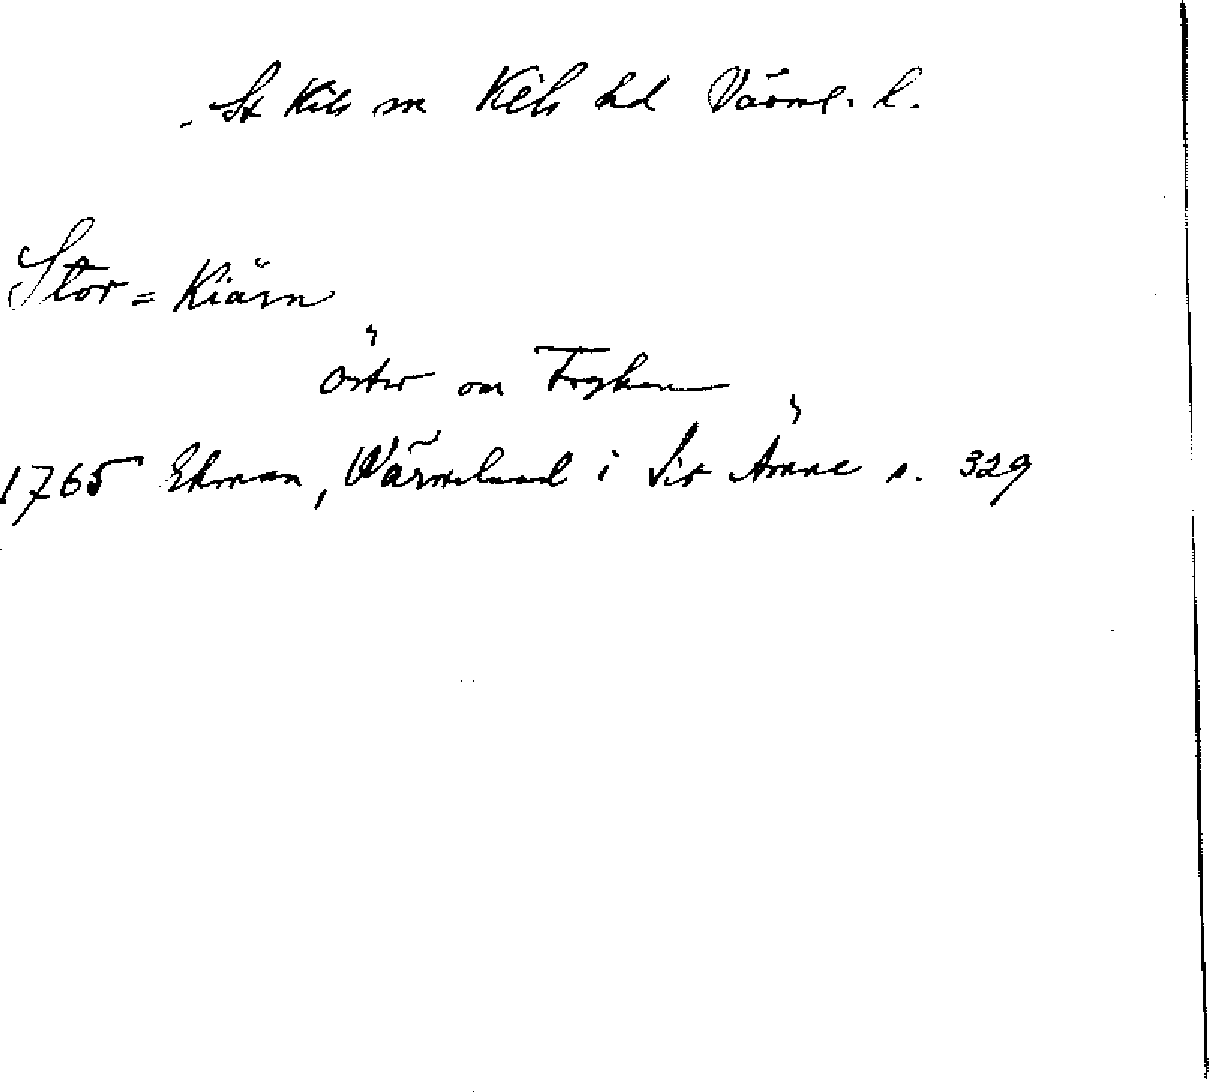 St Kils sn Kils hd Värml. l.
Stor=Kiärn
öster om Fryken
1765 Ekman, Wärmeland i Sit Ämne s. 329